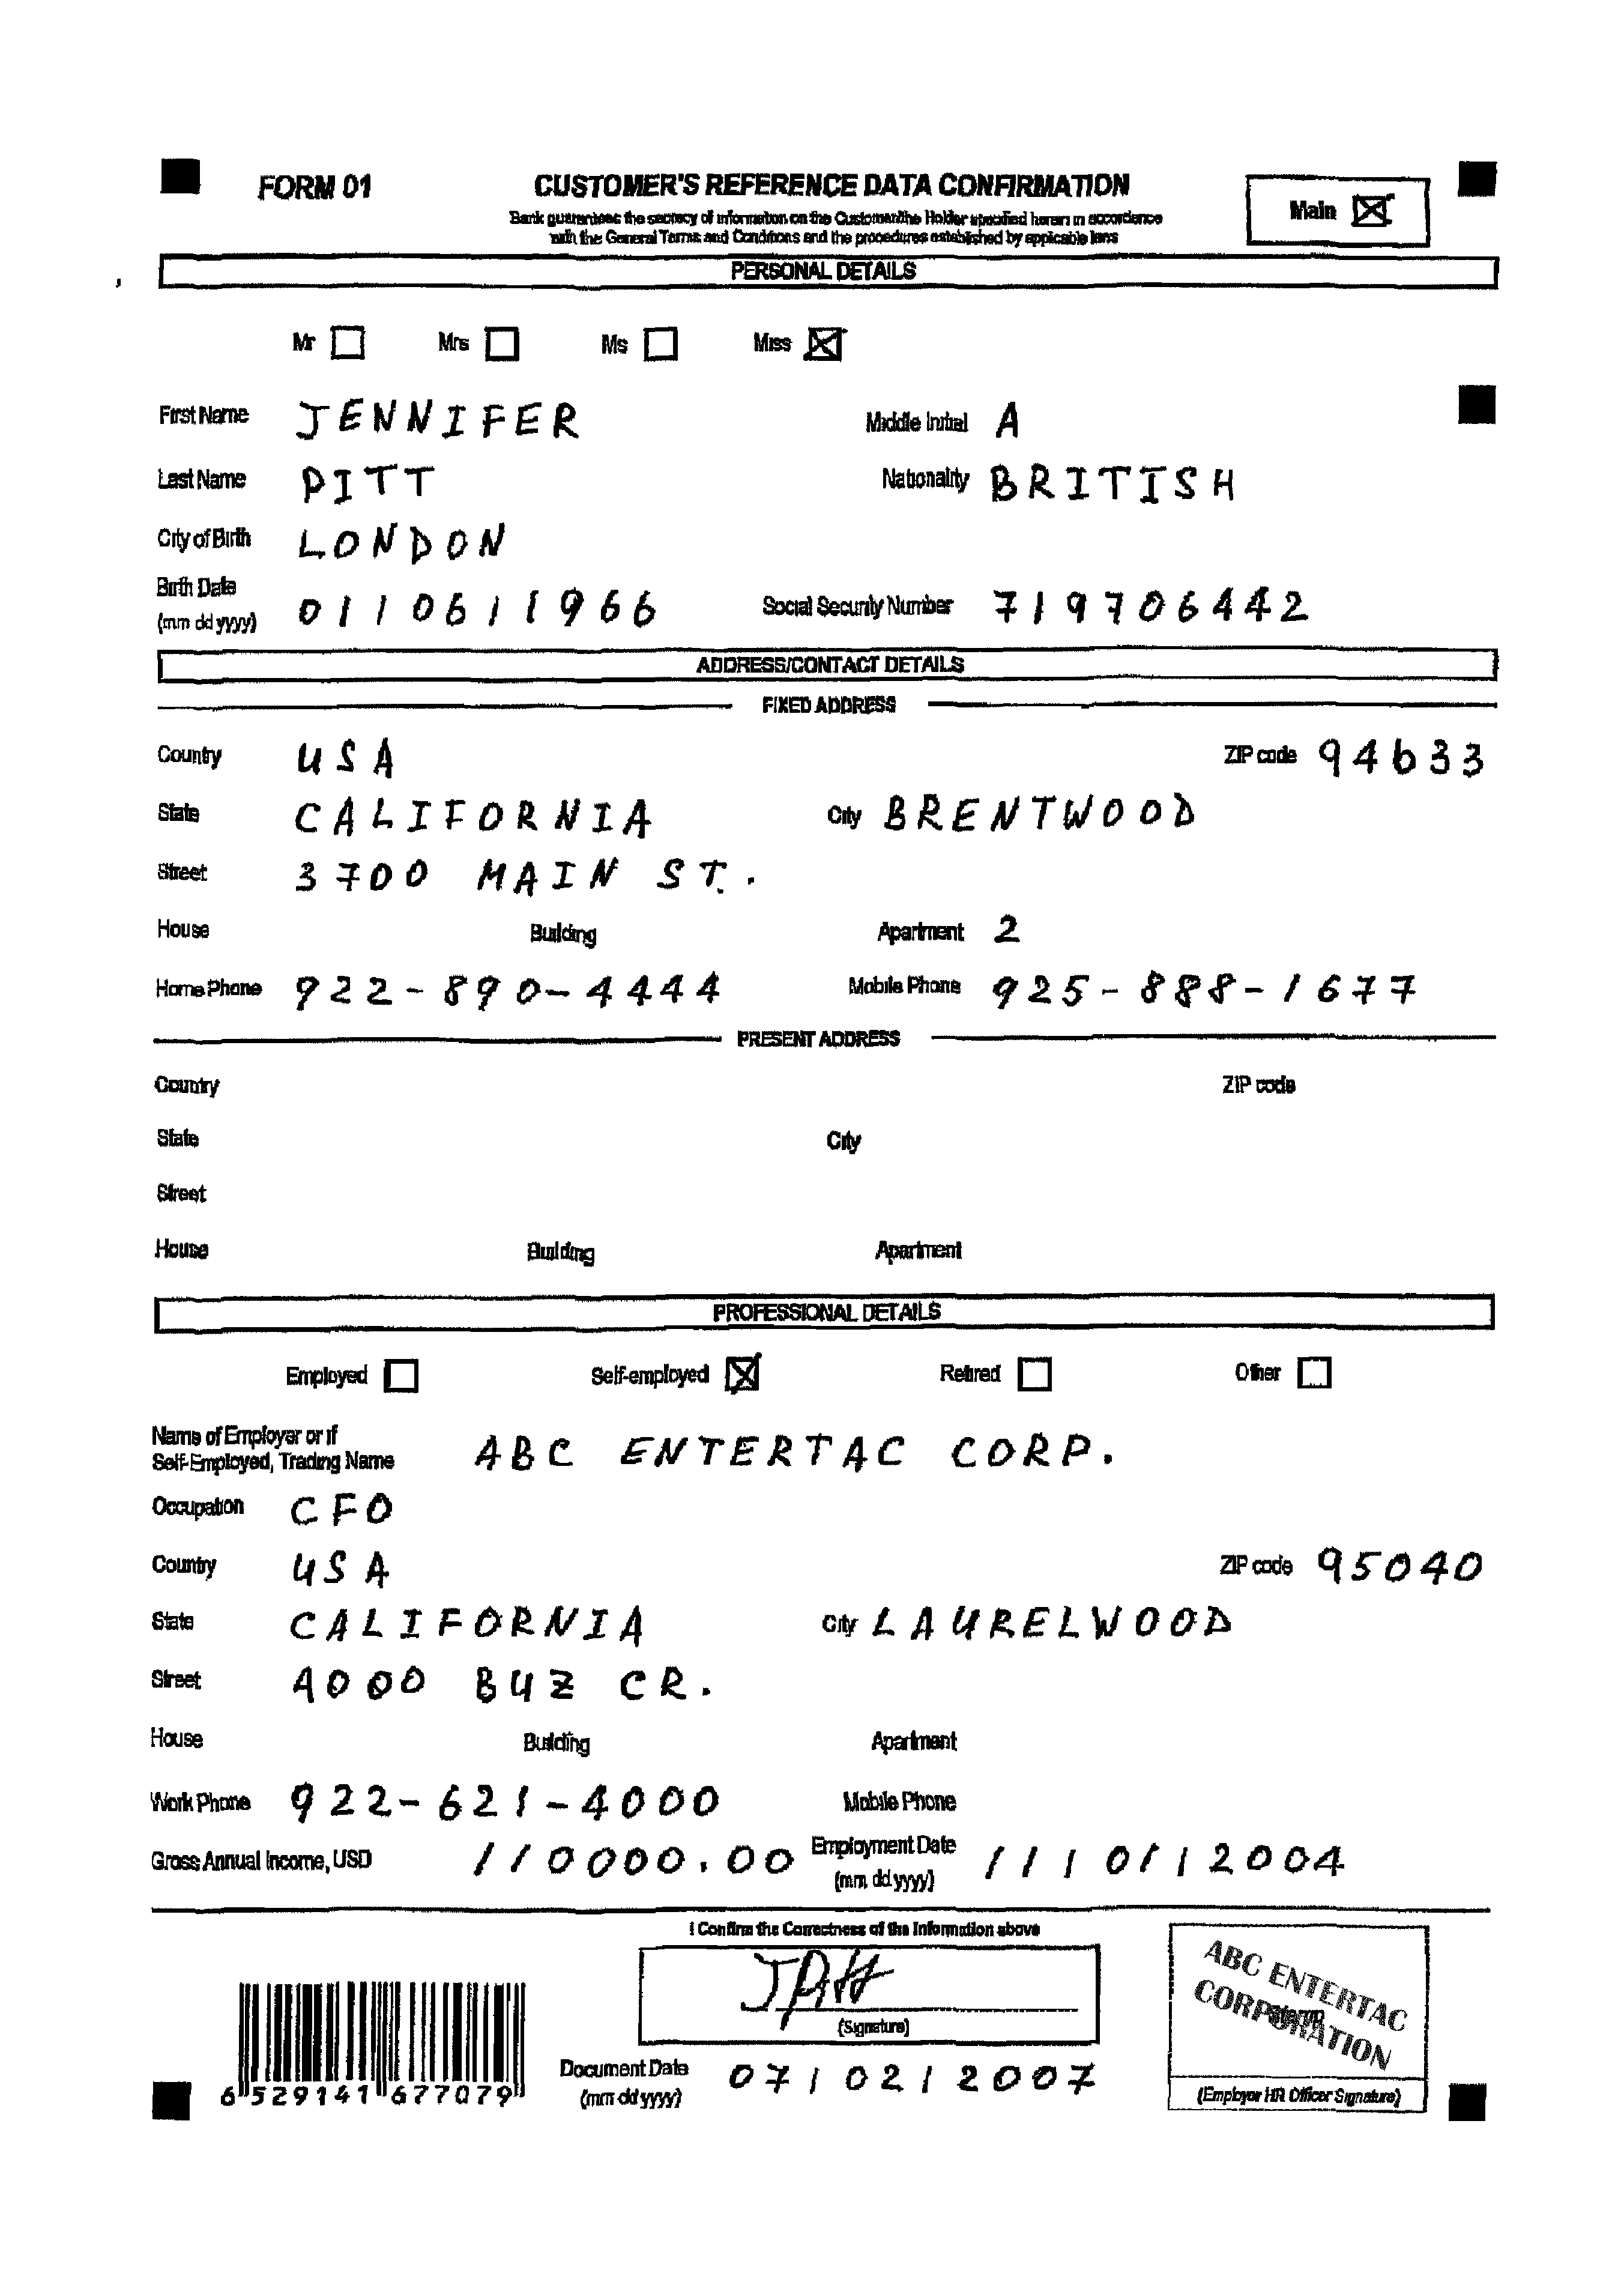 FORM 01
CUSTOMER'S REFERENCE DATA CONFIRMATION
Main
Bank guarantees the secrecy of information on the Customer/the Holder specified herein in accordance
with the General Terms and Conditions and the procedures established by applicable laws
PERSONAL DETAILS
Mr Mrs Ms Miss
First Name JENNIFER Middle Initial A
Last Name PITT Nationality BRITISH
City of Birth LONDON
Birth Date
(mm dd yyyy) 01/06/1966 Social Security Number 719706442
ADDRESS/CONTACT DETAILS
FIXED ADDRESS
Country USA ZIP code 94633
State CALIFORNIA City BRENTWOOD
Street 3700 MAIN ST.
House Building Apartment 2
Home Phone 922-890-4444 Mobile Phone 925-888-1677
PRESENT ADDRESS
Country ZIP code
State City
Street
House Building Apartment
PROFESSIONAL DETAILS
Employed Self-employed Retired Other
Name of Employer or if
Self-Employed, Trading Name ABC ENTERTAC CORP.
Occupation CFO
Country USA ZIP code 95040
State CALIFORNIA City LAURELWOOD
Street BUZ CR.
House Building Apartment
Work Phone 922-621-4000 Mobile Phone
Gross Annual Income, USD 110000.00 Employment Date
(mm dd yyyy) 11/01/2004
I Confirm the Correctness of the Information above
JPitt
(Signature)
ABC ENTERTAC
CORPORATION
Stamp
Document Date
(mm dd yyyy) 07/02/2007
(Employer HR Officer Signature)
6 529141 677079